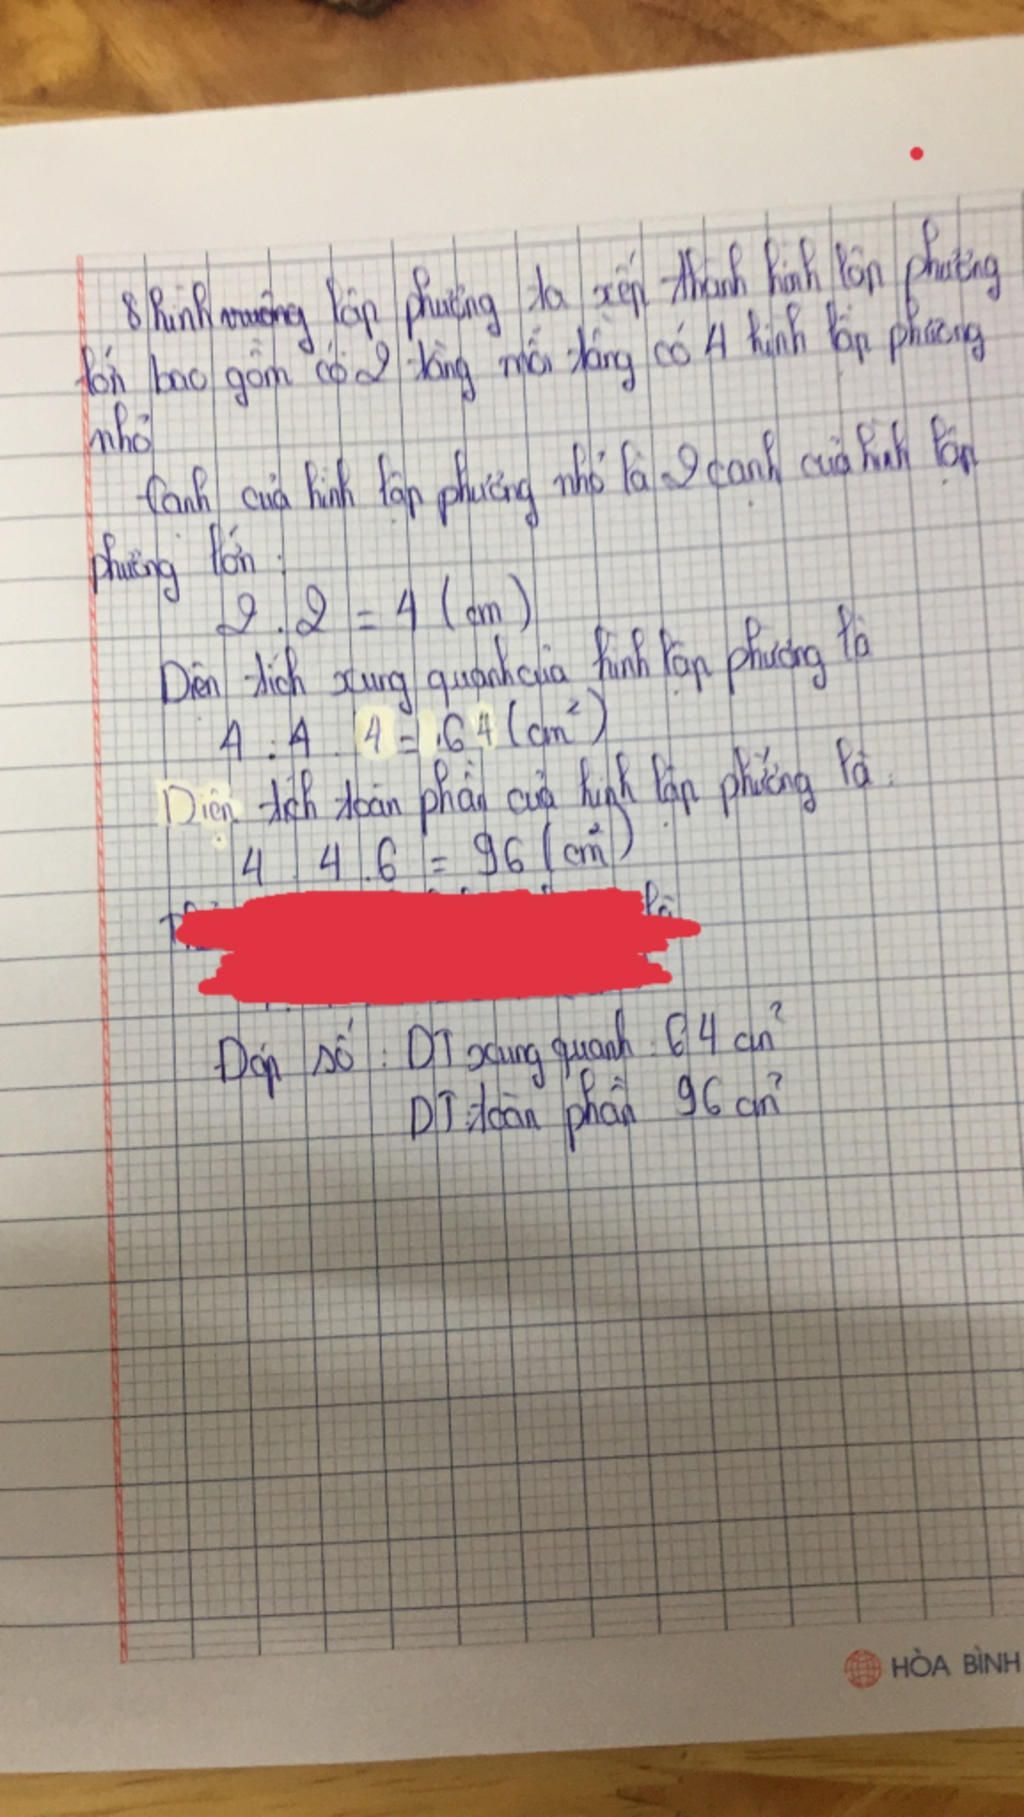 8 hình vuông lập phương ta xếp thành hình lập phương
lớn bao gồm có 2 tầng mỗi tầng có 4 hình lập phương
nhỏ
Cạnh của hình lập phương nhỏ là 2 cạnh của hình lập
phương lớn:
2.2 = 4 (cm)
Diện tích xung quanh của hình lập phương là
4.4.4 = 64 (cm²)
Diện tích toàn phần của hình lập phương là:
4.4.6 = 96 (cm²)
là
Đáp số: DT xung quanh: 64 cm²
DT toàn phần 96 cm²
HÒA BÌNH